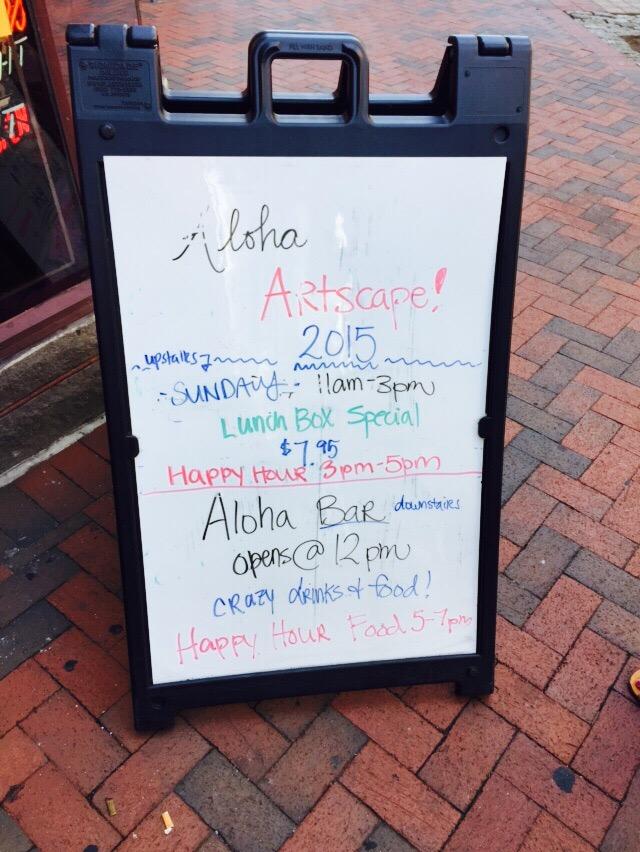 Aloha
Artscape!
2015
upstairs
SUNDAY: 11am-3pm
Lunch Box Special
$7.95
Happy Hour 3pm-5pm
Aloha Bar downstairs
opens @ 12pm
crazy drinks & food!
Happy Hour Food 5-7pm